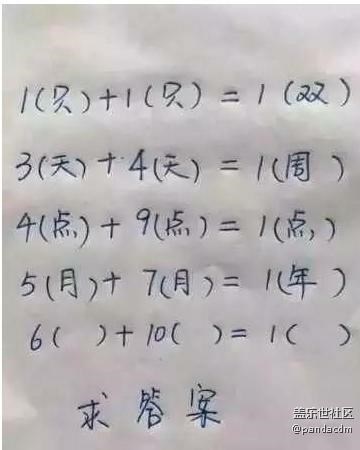 1(只)+1(只)=1(双)
3(天)+4(天)=1(周)
4(点)+9(点)=1(点)
5(月)+7(月)=1(年)
6( )+10( )=1( )
求答案
盖乐世社区
@pandacdm